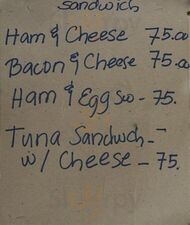 Sandwich
Ham & Cheese 75.00
Bacon & Cheese 75.00
Ham & Egg Sw - 75.
Tuna Sandwch -
w/ Cheese - 75.